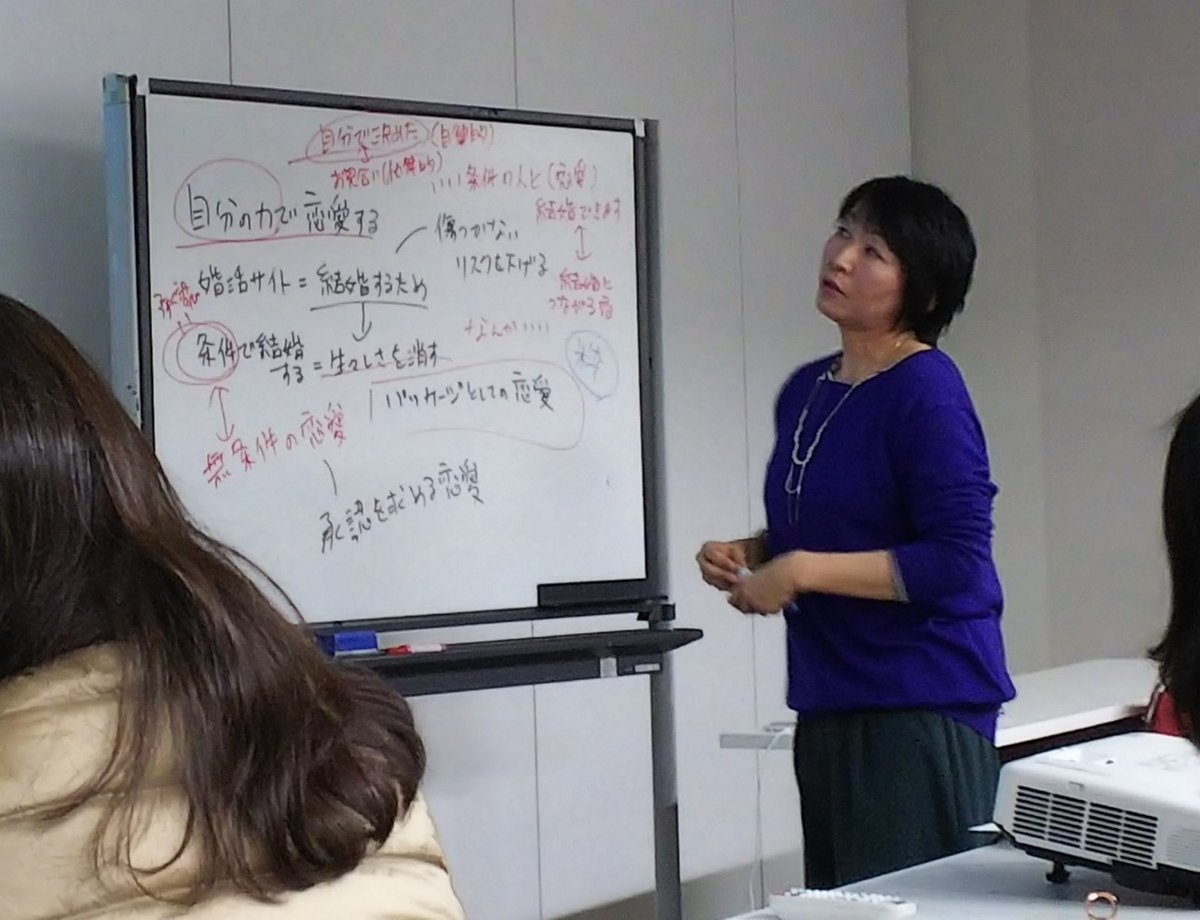 自分で決めた(自発的)
お見合い(他発的)
いい条件の人と(恋愛)
結婚できます
自分の力で恋愛する
傷つかない
リスクを下げる
結婚に
つながる恋
婚活サイト=結婚するため
なんか、、、、
条件で結婚
する=生々しさを消す
パッケージとしての恋愛
無条件の恋愛
承認を求める恋愛